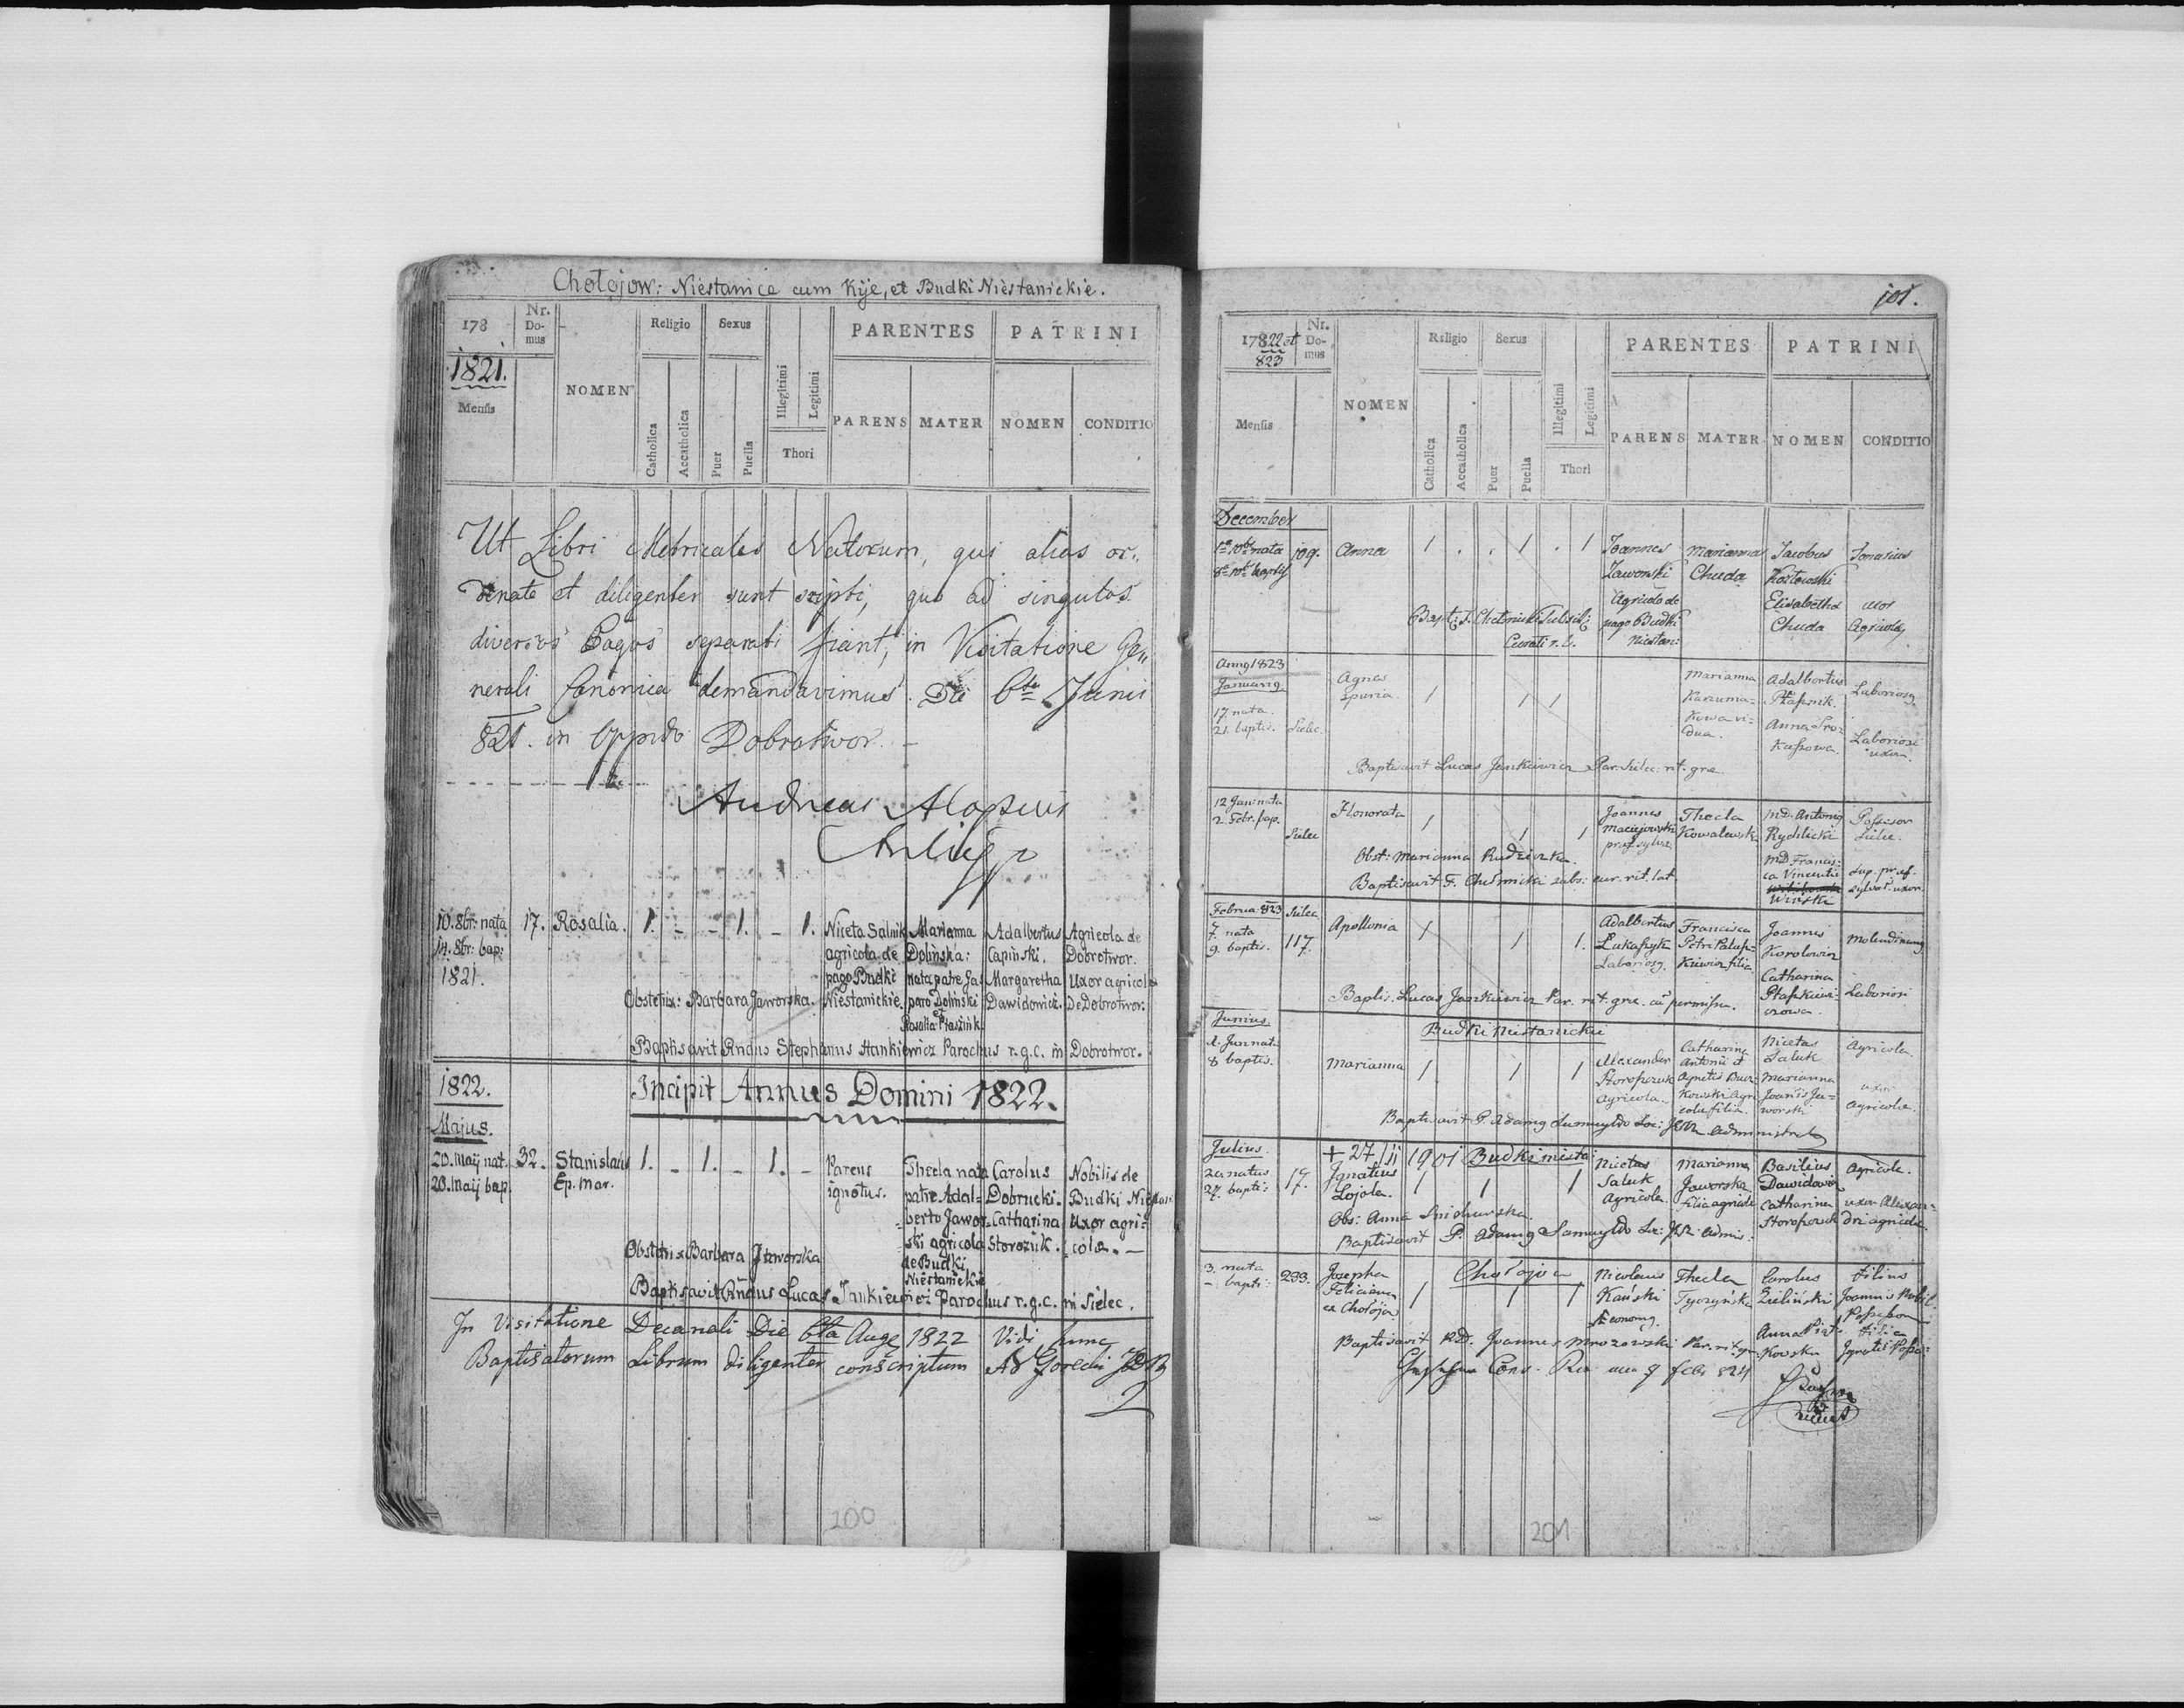 Chołojow: Niestanice cum Kije, et Budki Niestanickie.
178
Nr. Do-mus
NOMEN
Religio
Sexus
PARENTES
PATRINI
1821.
Mensis
Catholica
Accatholica
Puer
Puella
Illegitimi
Legitimi
Thori
PARENS
MATER
NOMEN
CONDITIO
Ut Libri Metricales Natorum, qui alias or-
dinate et diligenter sunt scripti, quo ad singulos
diversos Pagos separati fiant, in Visitatione Ge,,
nerali Canonica demandavimus. Die 6ta Junii
821. in Oppido Dobrotwor. –
Andreas Alopsius
10. 8br: nata
14. 8br: bap:
1821.
17.
Rosalia.
1. - - 1. - 1.
Niceta Salnik
agricola de
pago Budki
Niestanickie.
Marianna
Dolinska:
nata patre Gas-
paro Dolinski
et
Rosalia Ptaszink
Adalbertus
Capinski.
Margaretha
Dawidowicz.
Agricola de
Dobrotwor.
Uxor agricola
De Dobrotwor.
Obstetrix: Barbara Jaworska.
Baptisavit Rndus Stephanus Hankiewicz Parochus r.g.c. in Dobrotwor.
1822.
Incipit Annus Domini 1822.
Majus.
20. Maij nat.
23. Maij bap.
32.
Stanislaus
Ep. Mar.
1. - 1. - 1. -
Parens
ignotus.
Thecla nata
patre Adal-
berto Jawor-
ski agricola
de Budki
Niestanickie
Carolus
Dobrucki.
Catharina
Storozuk.
Nobilis de
Budki Niestani
Uxor agri-
cola. –
Obstetrix Barbara Jaworska
Baptisavit Rndus Lucas Jankiewicz Parochus r.g.c. in Sielec.
In Visitatione Decanali Die 6ta Aug 1822 Vidi hunc
Baptisatorum Librum diligenter conscriptum
200
101.
17822 et
823
Nr. Do-mus
Mensis
NOMEN
Religio
Sexus
Catholica
Accatholica
Puer
Puella
Illegitimi
Legitimi
Thori
PARENTES
PATRINI
PARENS
MATER
NOMEN
CONDITIO
December
1a 10br nata
8a 10br bapts
109.
Anna
1 . . 1 . 1
Joannes
Jaworski
Agricola de
pago Budki
Niestan:
Marianna
Chuda
Jacobus
Kozlowski
Elisabetha
Chuda
uxor
Agricola
Anno 1823
Januarius
17. nata
21. baptis.
Sielec
Agnes
spuria.
1 1 1
Marianna
vi-
dua.
Adalbertus
Ptasznik.
Laboriosus
Laboriosi
uxor.
Baptisavit Lucas Jankiewicz Par. Sielec: rit. gre.
12 Jan: nata
2. Febr. bap.
Sielec
Honorata
1 1 1
Joannes
Maciejowski
praef. sylvae
Thecla
Kowalewsk-
MD. Antonius
Rychlicki
MD Francis:
ca Vincentii
Possesor
Sielec.
sup. praef.
sylvar. uxor.
Obst: Marianna Rudzicka.
Baptisavit F. Chelmicki subs: cur. rit. lat.
Februa: 823
7. nata
9. baptis.
Sielec
117.
Apollonia
1 1 1.
Adalbertus
Lukaszyk
Laboriosus.
Francisca
Petri Palusz-
kiewicz filia
Joannis
Korolowicz
Catharina
Ptaszkiewi-
czowa.
Molendinarius
Laboriosi
Baptis. Lucas Jankiewicz Par. rit. gre. cum permiss.
Junius.
1. Jun nat.
8 baptis.
Budki Niestanickie
Marianna
1 1 1
Alexander
Storoszczuk
Agricola.
Catharina
Antonii et
Agnetis Bucz-
kowski Agri-
colae filia.
Nicetas
Saluk
Marianna
Joannis Ja-
worski
Agricola
uxor
Agricolae.
Baptisavit P. Adamus Samuyllo Loc: Administrator
Julius.
20 natus
27. bapti:
17.
+ 27/II 1901
Budki niesta:
Ignatius
Lojola.
1 1 1
Nicetas
Saluk
Agricola.
Marianna
Jaworska
filia agricolae
Basilius
Dawidowicz
Catharina
Storoszczuk
Agricola.
uxor Alexan-
dri agricolae.
Obs: Anna
Baptisavit P. Adamus Samuyllo Loc: Admis:
3. nata
– bapti:
233.
Chołojow
Josepha
Feliciana
ex Chołojow
1 1 1
Nicolaus
Kański
Aeconomus.
Thecla
Tyczyńska
Carolus
Zieliński
Anna Piąt-
kowska
filius
Joannis Nobil.
filia
Ignatii
Baptisavit RD. Joannes Mrozowski Par. rit. gr.
201